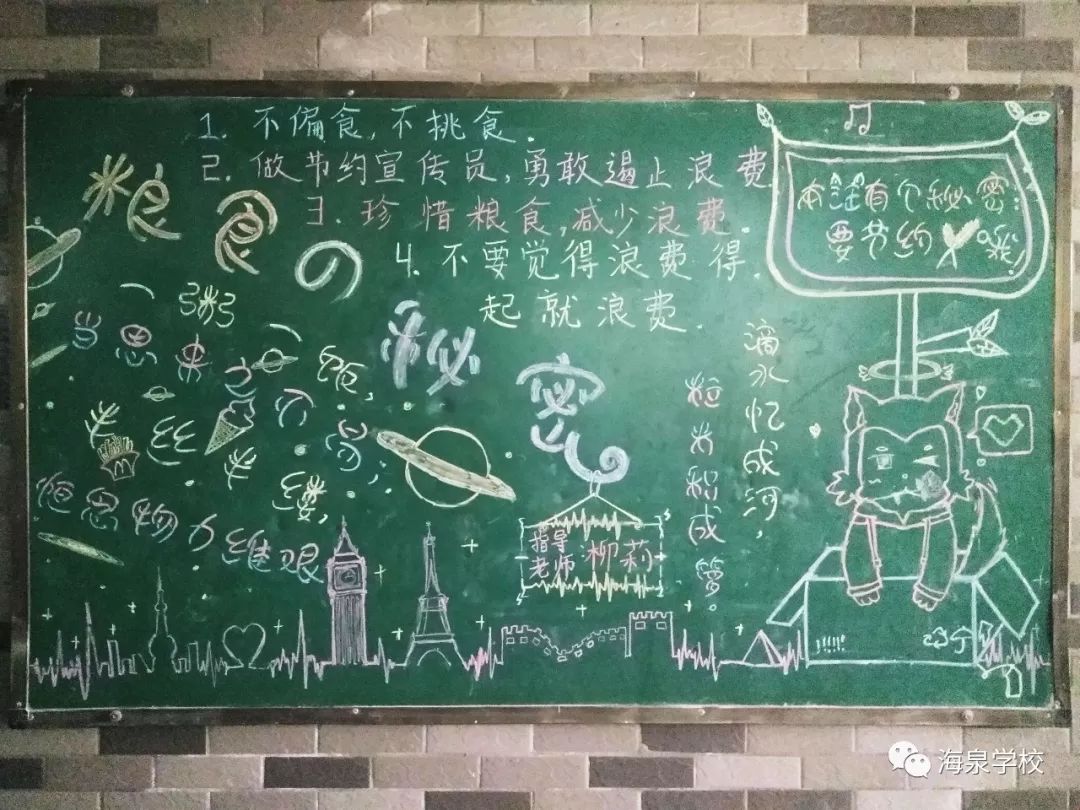 1. 不偏食,不挑食.
2. 做节约宣传员,勇敢遏止浪费
3. 珍惜粮食,减少浪费.
4. 不要觉得浪费得
起就浪费.
粮食の秘密
本汪有个秘密:
要节约 哦!
一粥一饭,
当思来之不易;
半丝半缕,
恒念物力维艰
滴水忆成河,
粒米积成箩。
指导
老师 柳莉
海泉学校